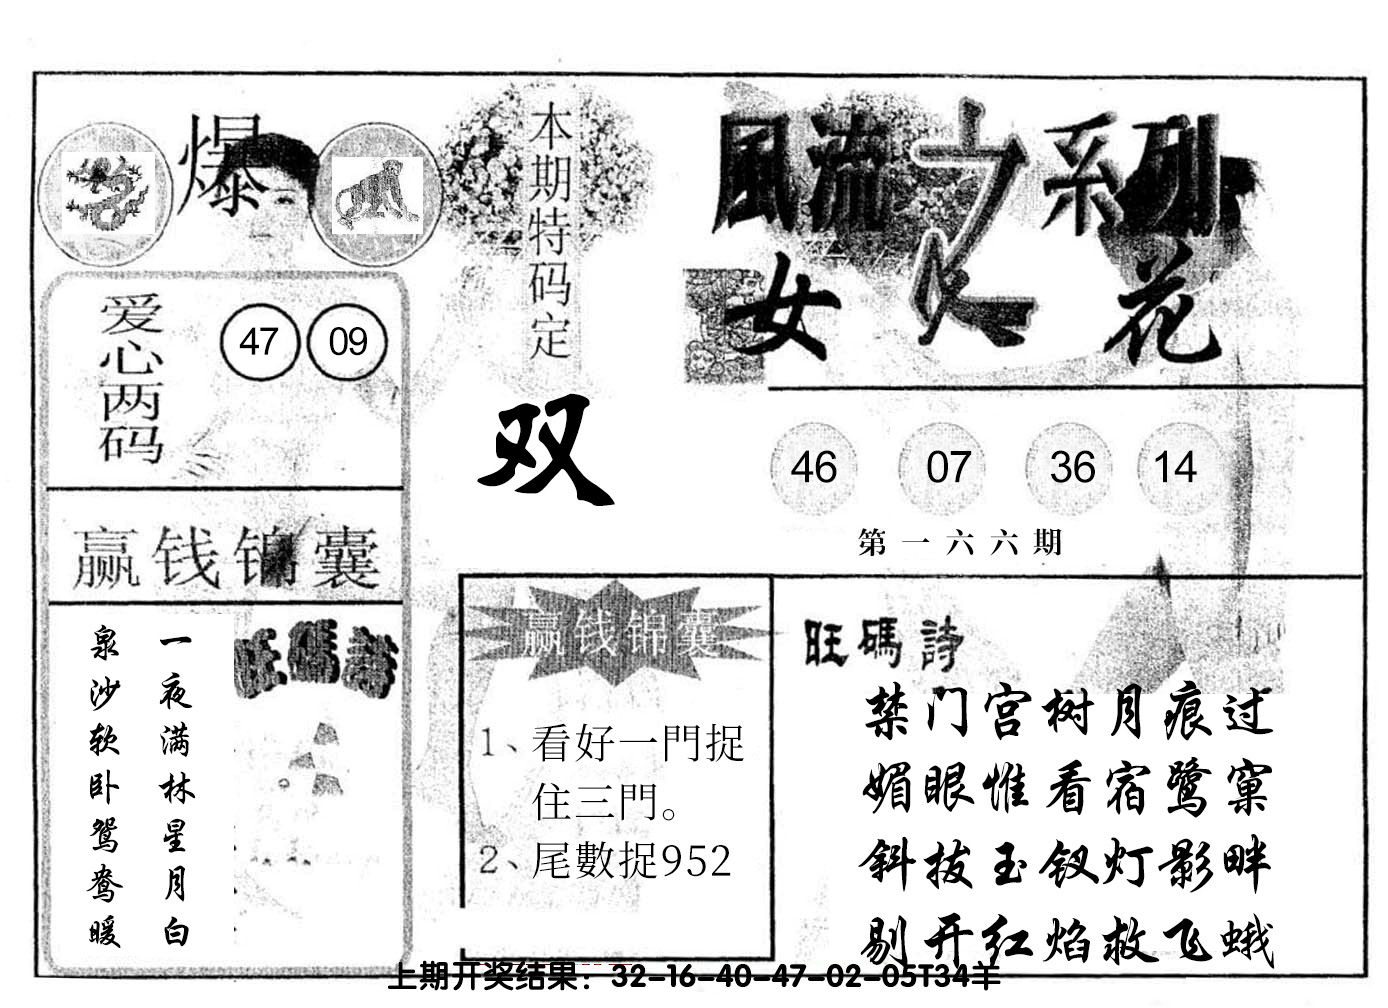 爆
本期特码定
双
風流之系列
女人花
爱心两码
47 09
46 07 36 14
第一六六期
赢钱锦囊
旺碼詩
一夜满林星月白
泉沙软卧鸳鸯暖
赢钱锦囊
1、看好一門捉
住三門。
2、尾數捉952
旺碼詩
禁门宫树月痕过
媚眼惟看宿鹭窠
斜拔玉钗灯影畔
剔开红焰救飞蛾
上期开奖结果：32-16-40-47-02-05T34羊